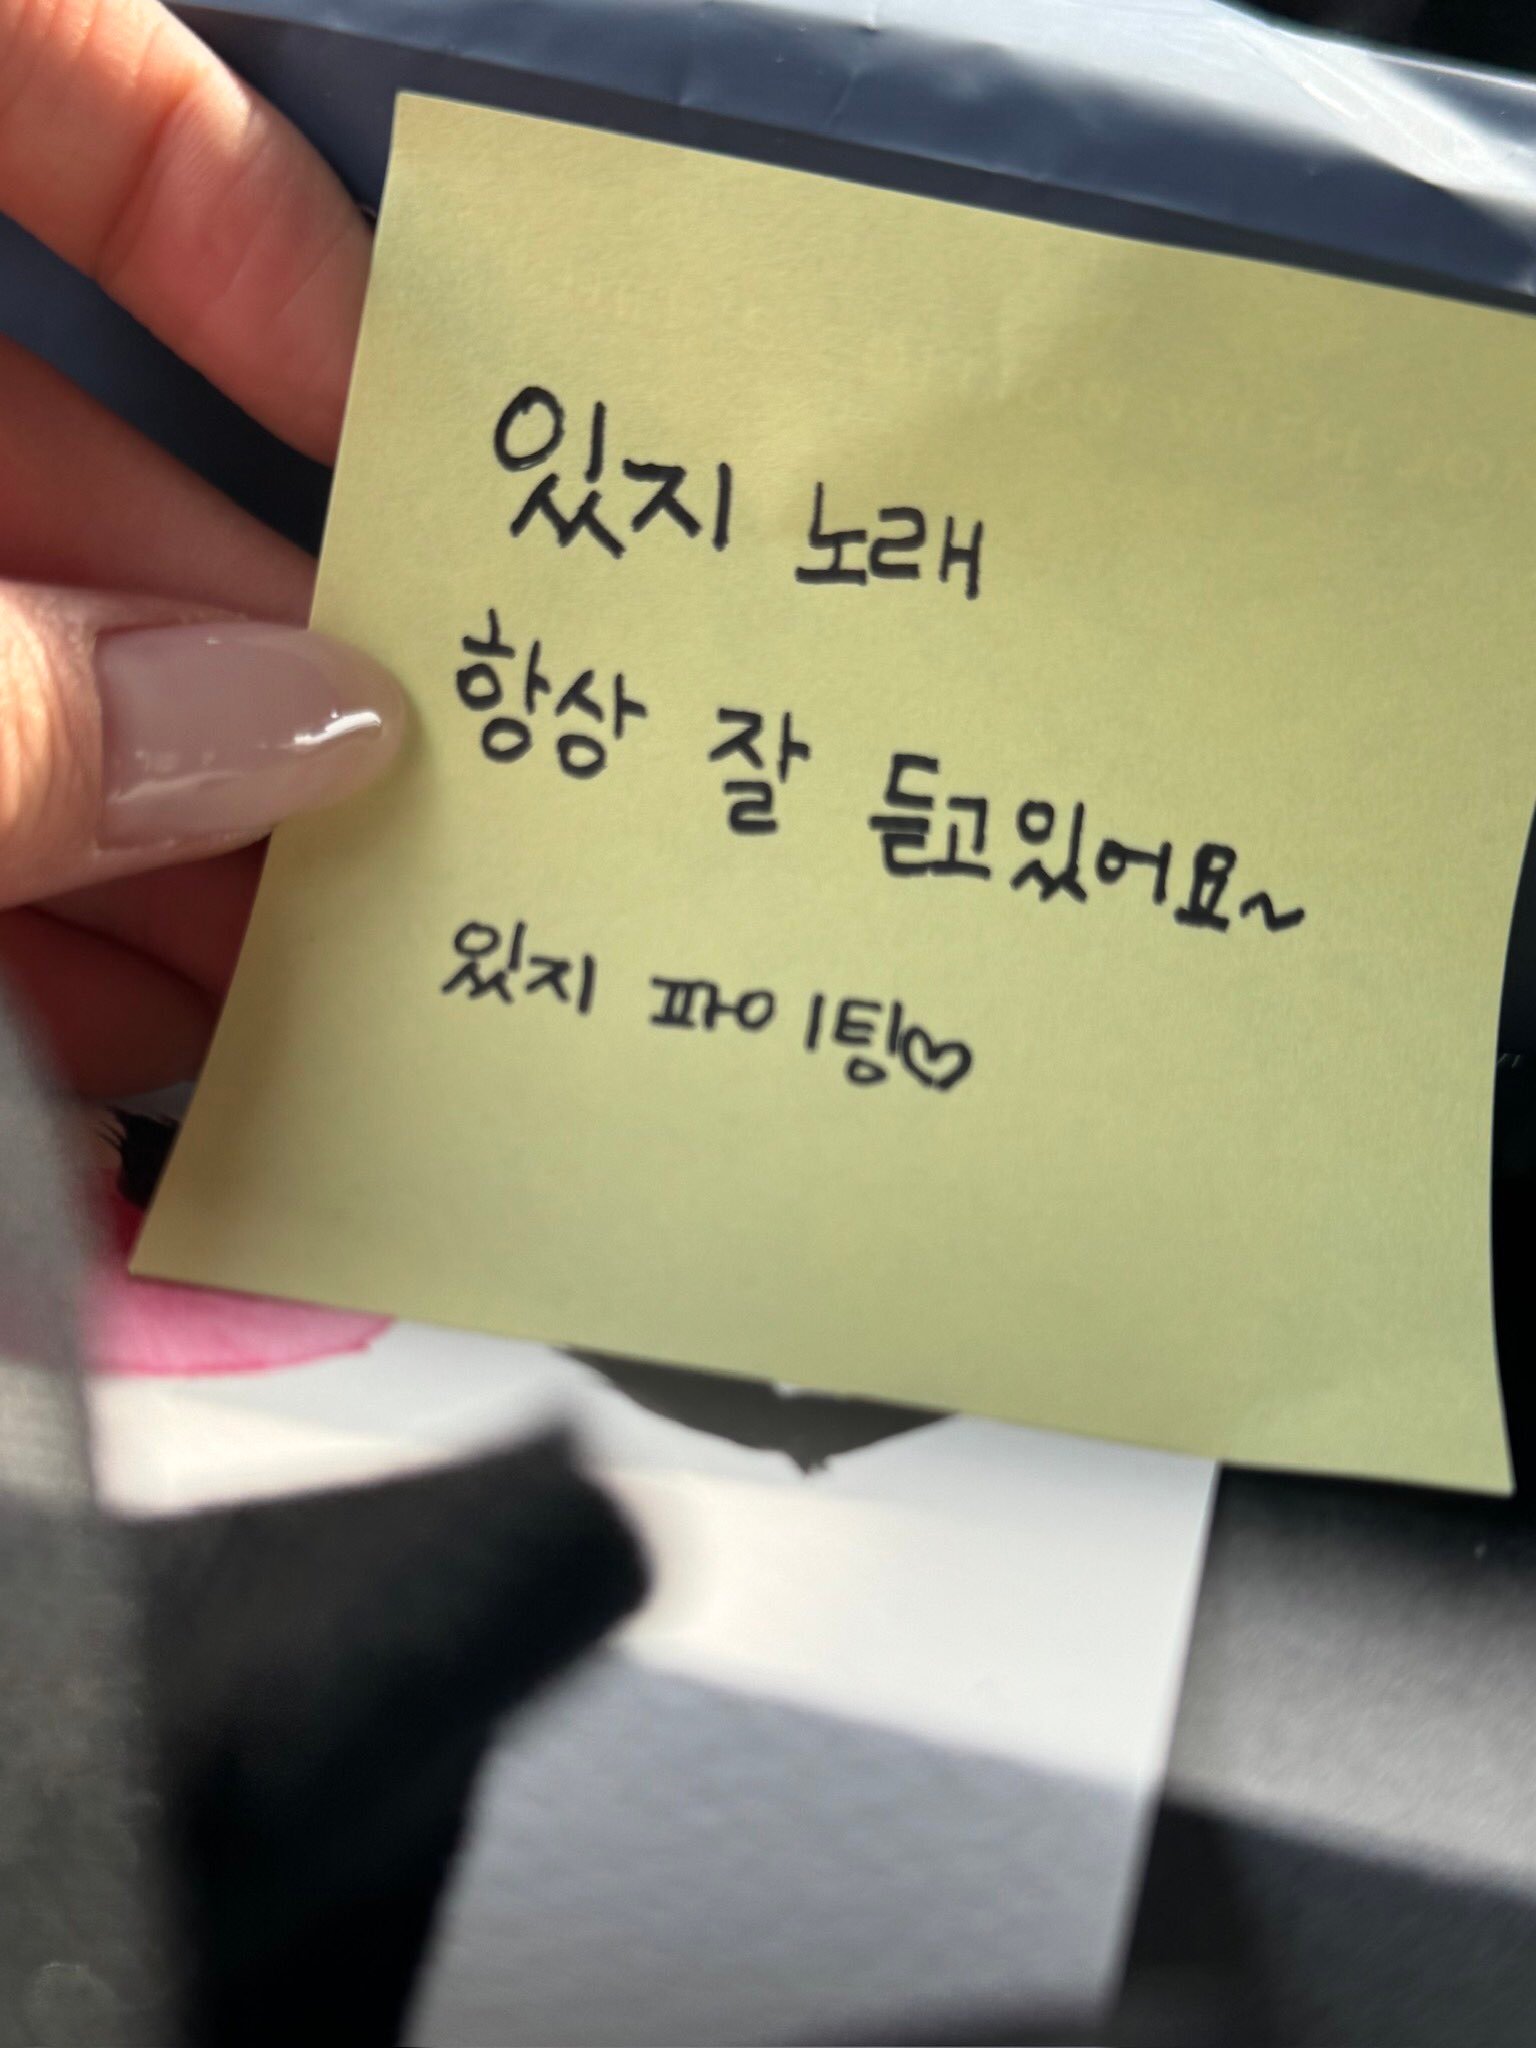 있지 노래
항상 잘 듣고있어요~
있지 파이팅♡